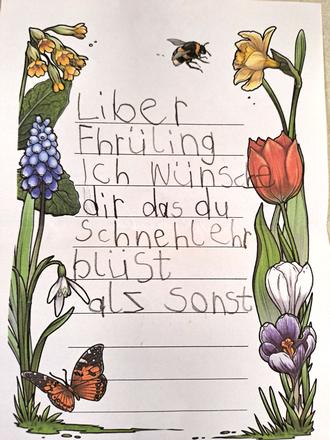 Liber
Fhrüling
Ich wünsche
dir das du
schnehlehr
blüst
als sonst